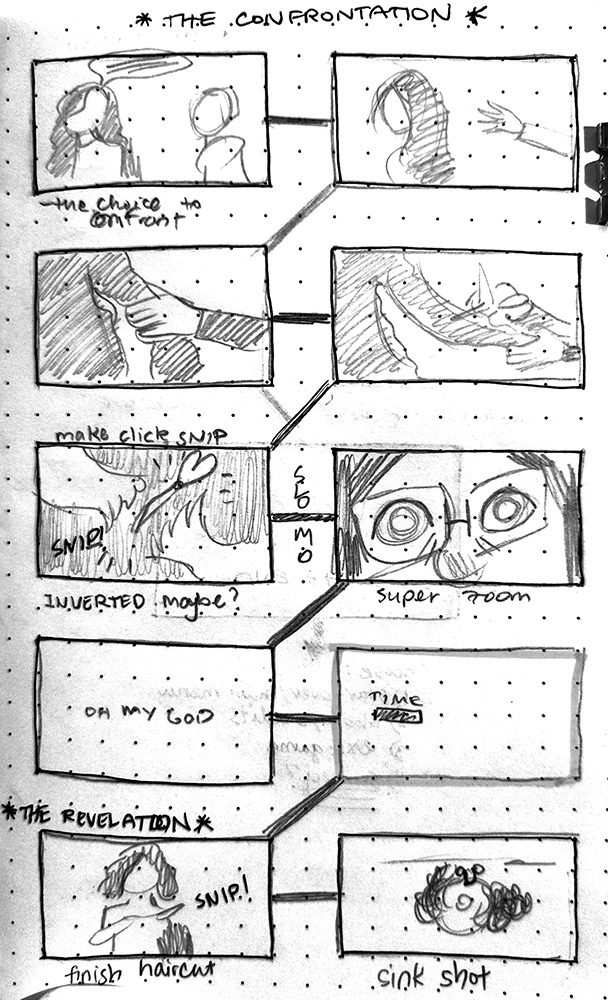 * THE CONFRONTATION *
the choice to
confront
make click SNIP
SNIP!
SLO MO
INVERTED maybe?
super zoom
OH MY GOD
TIME
*THE REVELATION*
SNIP!
finish haircut
sink shot